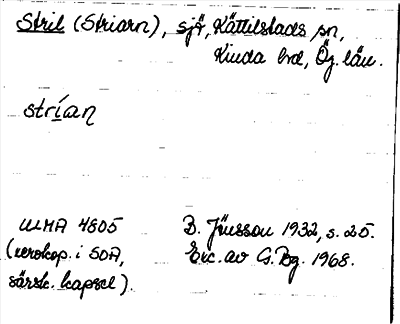 Stril (Striarn), sjö, Kättilstads sn,
Kinda hd, Ög. län.
strían
ULMA 4805
(xerokop. i SOA,
särsk. kapsel).
B. Jönsson 1932, s. 25.
Exc. av G. Bg. 1968.